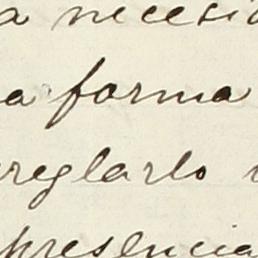 a necesi
a forma
reglarlo
presencia